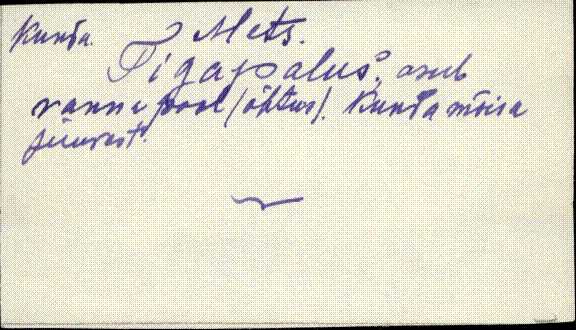 Kunda. Mets.
Tigapalus, asub
ranna pool /õhtus/. Kunda mõisa
juurest.